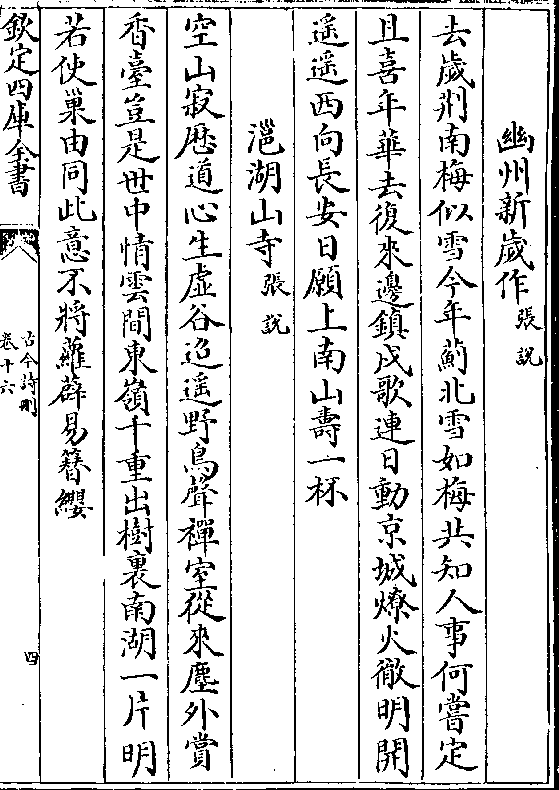 幽州新歲作 張說
去歲荆南梅似雪今年薊北雪如梅共知人事何嘗定
且喜年華去復來邊鎮戍歌連日動京城燎火徹明開
遥遥西向長安日願上南山壽一杯
㴩湖山寺 張說
空山寂厯道心生虛谷迢遥野鳥聲禪室從來塵外賞
香臺豈是世中情雲間東嶺千重出樹裏南湖一片明
若使巢由同此意不將蘿薜易簪纓
欽定四庫全書
古今詩刪
卷十六
四